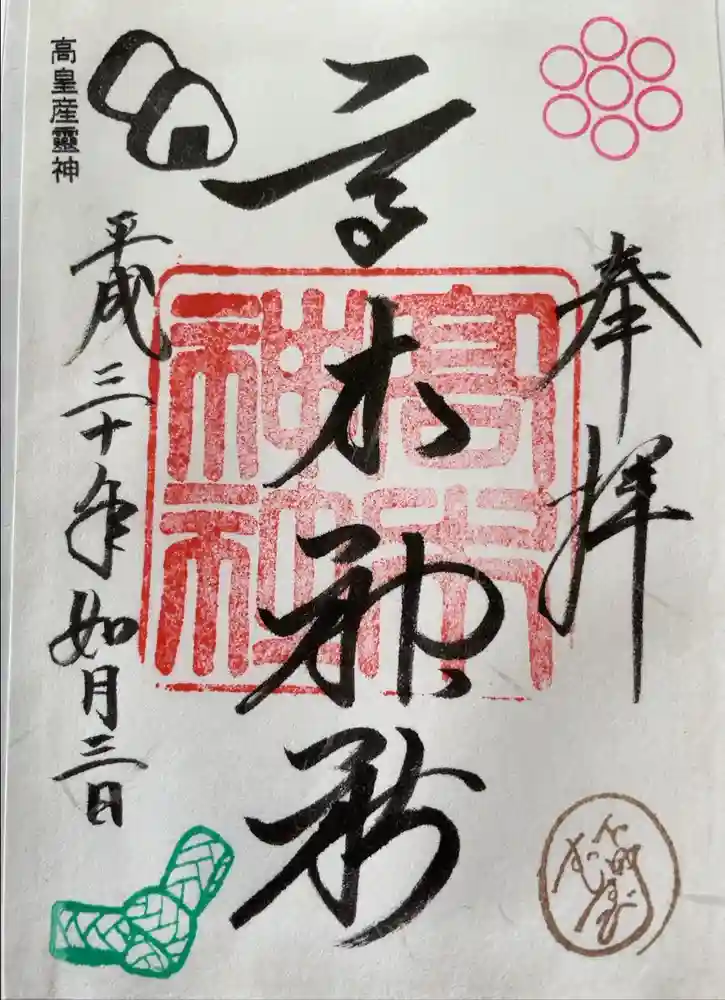 奉拝
高木神社
高木神社
高皇産靈神
平成三十年如月三日